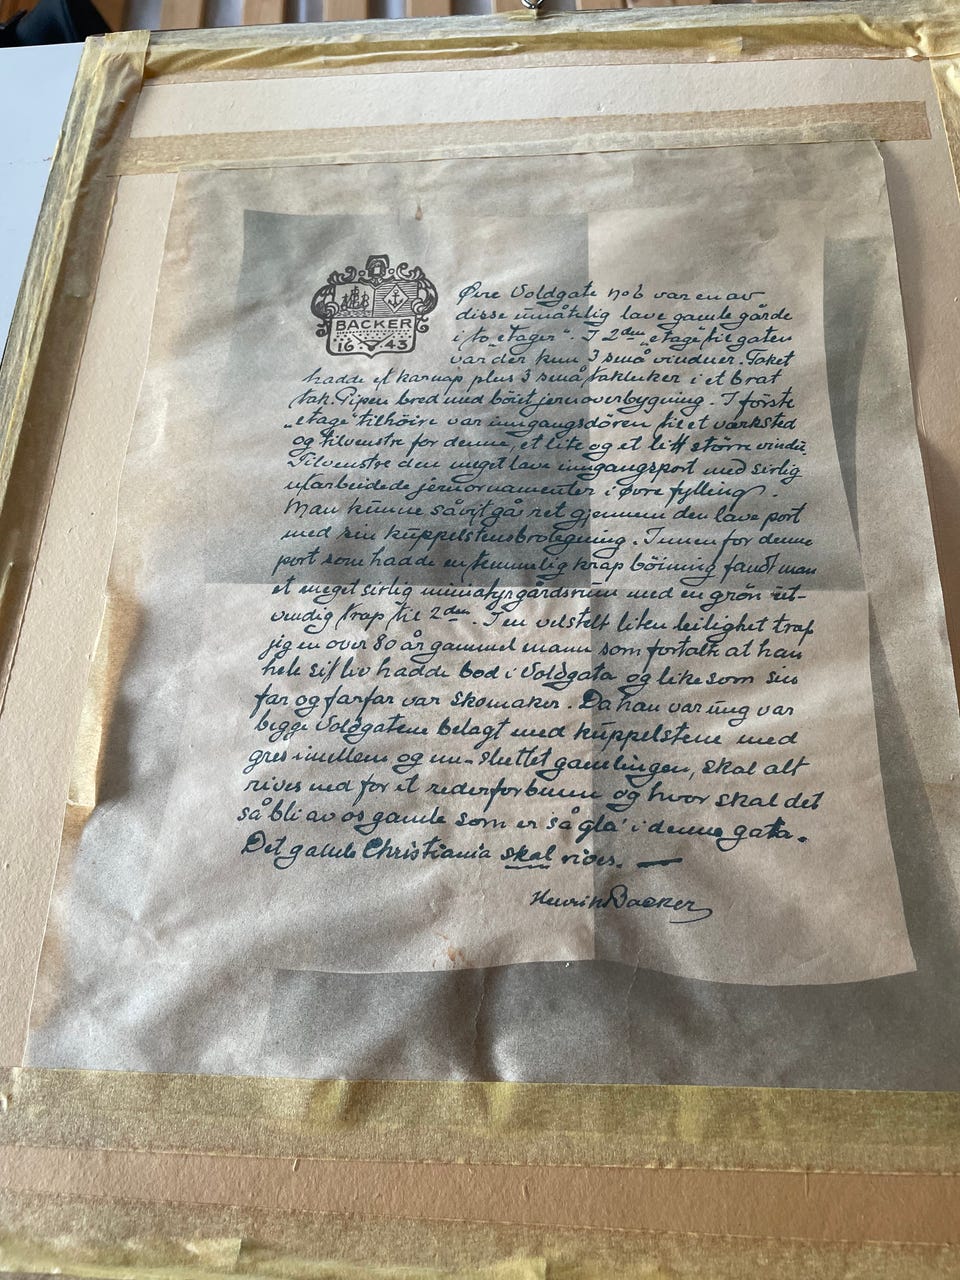 BACKER
1643
Øvre Voldgate no 6 var en av
disse umåtelig lave gamle gårde
i to „etager". I 2den „etage" til gaten
var der kun 3 små vinduer. Taket
hadde et karnap plus 3 små takluker i et brat
tak. Pipen bred med böiet jernoverbygning. I förste
„etage" tilhöire var inngangsdören til et værksted
og tilvenstre for denne, et lite og et litt större vindu.
Tilvenstre den meget lave inngangsport med sirlig
utarbeidede jernornamenter i övre fylling.
Man kunne såvidt gå ret gjennem den lave port
med sin kuppelstensbrolegning. Innen for denne
port som hadde en temmelig krap böining fandt man
et meget sirlig miniatyrgårdsrum med en grön ut-
vendig trap til 2den. I en velstelt liten leilighet traf
jeg en over 80 år gammel mann som fortalte at han
hele sit liv hadde bod i Voldgata og likesom sin
far og farfar var skomaker. Da han var ung var
begge Voldgatene belagt med kuppelstene med
gres imellem og nu - sluttet gamlingen, skal alt
rives ned for et rederforbunn og hvor skal det
så bli av os gamle som er så gla' i denne gata.
Det gamle Christiania skal rives. —
Henrik Backer